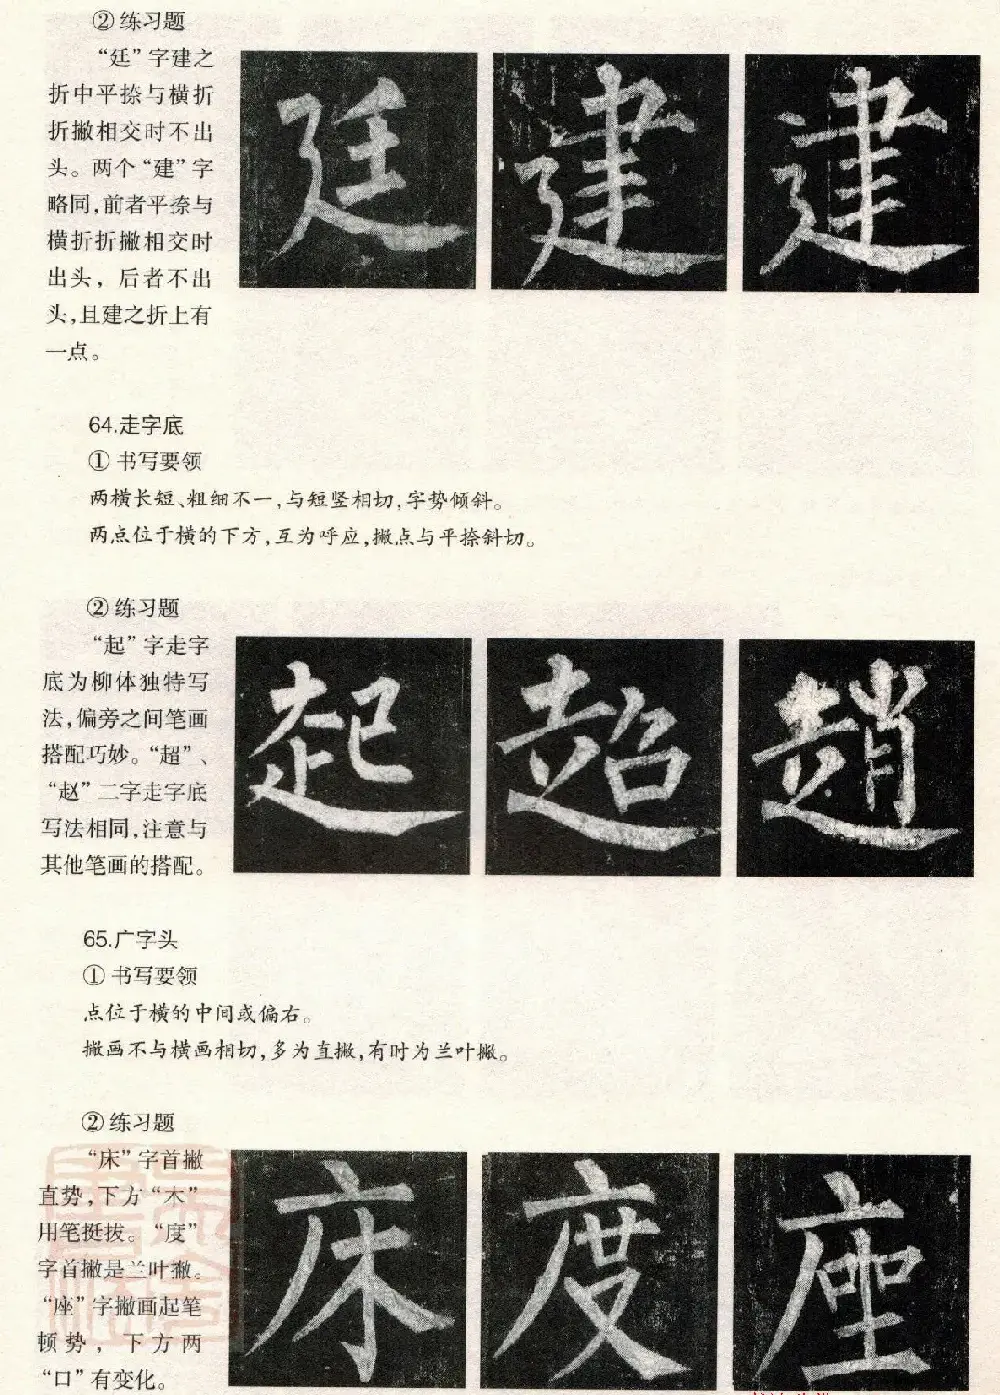 ②练习题
“廷”字建之
折中平捺与横折
折撇相交时不出
头。两个“建”字
略同,前者平捺与
横折折撇相交时
出头，后者不出
头,且建之折上有
一点。
廷 建 建
64.走字底
① 书写要领
两横长短、粗细不一,与短竖相切,字势倾斜。
两点位于横的下方,互为呼应,撇点与平捺斜切。
②练习题
“起”字走字
底为柳体独特写
法,偏旁之间笔画
搭配巧妙。“超”、
“赵”二字走字底
写法相同,注意与
其他笔画的搭配。
起 超 趙
65.广字头
① 书写要领
点位于横的中间或偏右。
撇画不与横画相切,多为直撇,有时为兰叶撇。
②练习题
“床”字首撇
直势,下方“木”
用笔挺拔。“度”
字首撇是兰叶撇。
“座”字撇画起笔
顿势，下方两
“口”有变化。
床 度 座